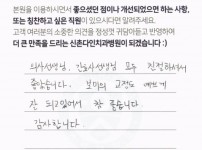 본원을 이용하시면서 좋으셨던 점이나 개선되었으면 하는 사항,
또는 칭찬하고 싶은 직원이 있으시다면 알려주세요.
고객 여러분의 소중한 의견을 정성껏 귀담아듣고 반영하여
더 큰 만족을 드리는 신촌다인치과병원이 되겠습니다 :)
의사선생님, 간호사선생님 모두 친절하셔서
좋았습니다. 보라미 교정도 예쁘게
잘 되고있어서 참 좋습니다
감사합니다